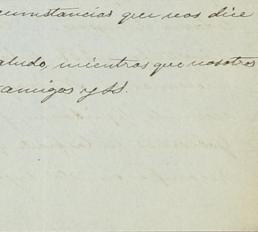 cumstancias que nos dice
aludo, mientras que nosotros
amigos y SS.